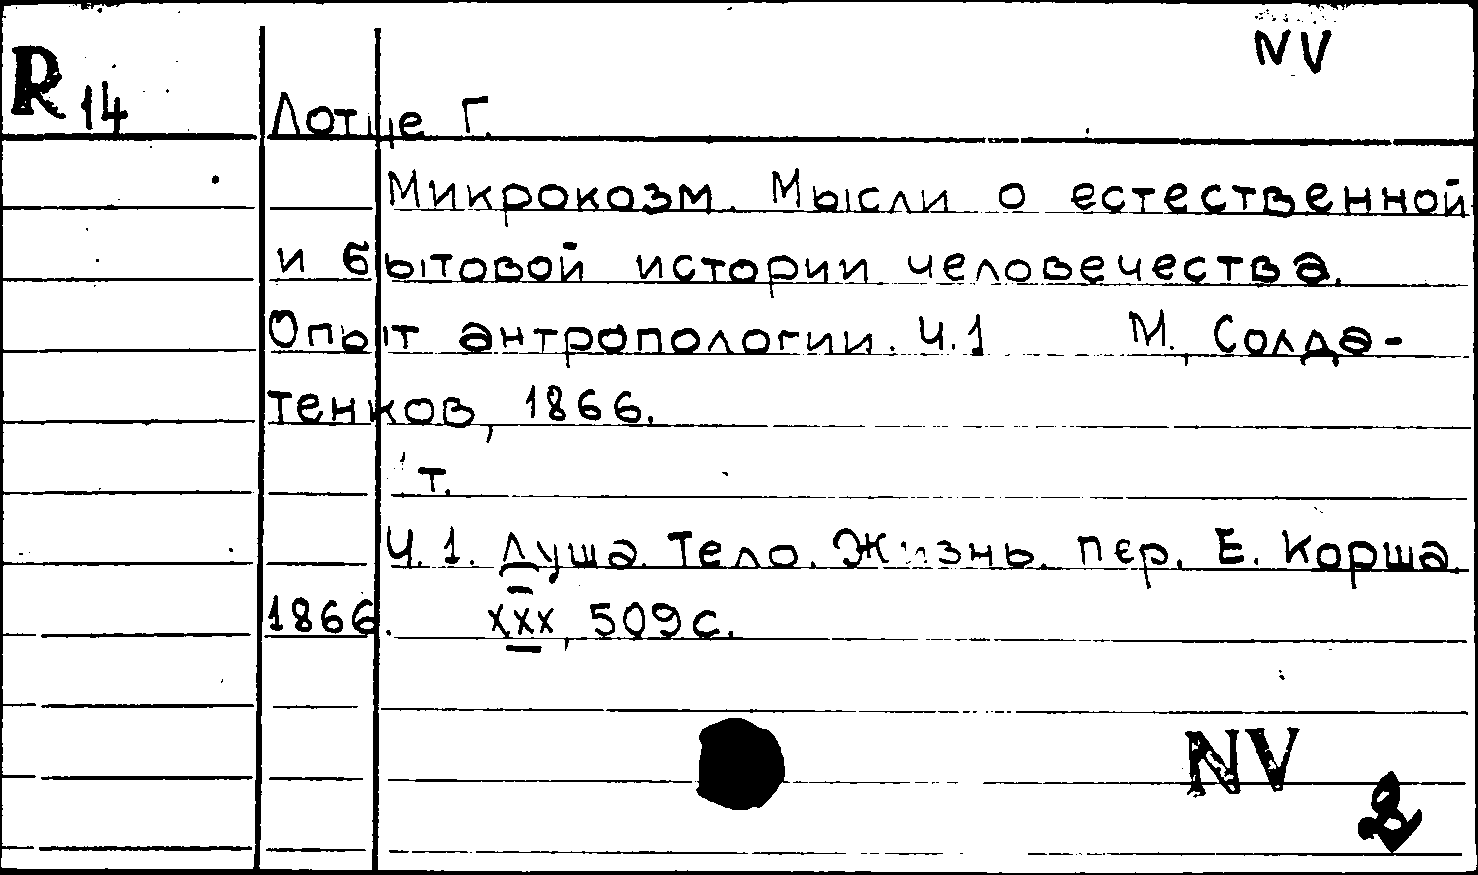 NV
R 14
Лотце Г.
Микрокозм. Мысли о естественной
и бытовой истории человечества.
Опыт антропологии. Ч.1 М., Солда-
тенков, 1866.
1 т.
Ч. 1. Душа. Тело. Жизнь. пер. Е. Корша.
1866. XXX, 509 с.
NV
2